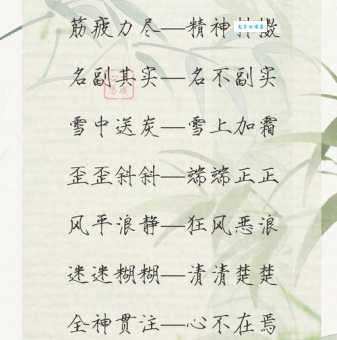 筋疲力尽—精神
名副其实—名不副实
雪中送炭—雪上加霜
歪歪斜斜—端端正正
风平浪静—狂风恶浪
迷迷糊糊—清清楚楚
全神贯注—心不在焉